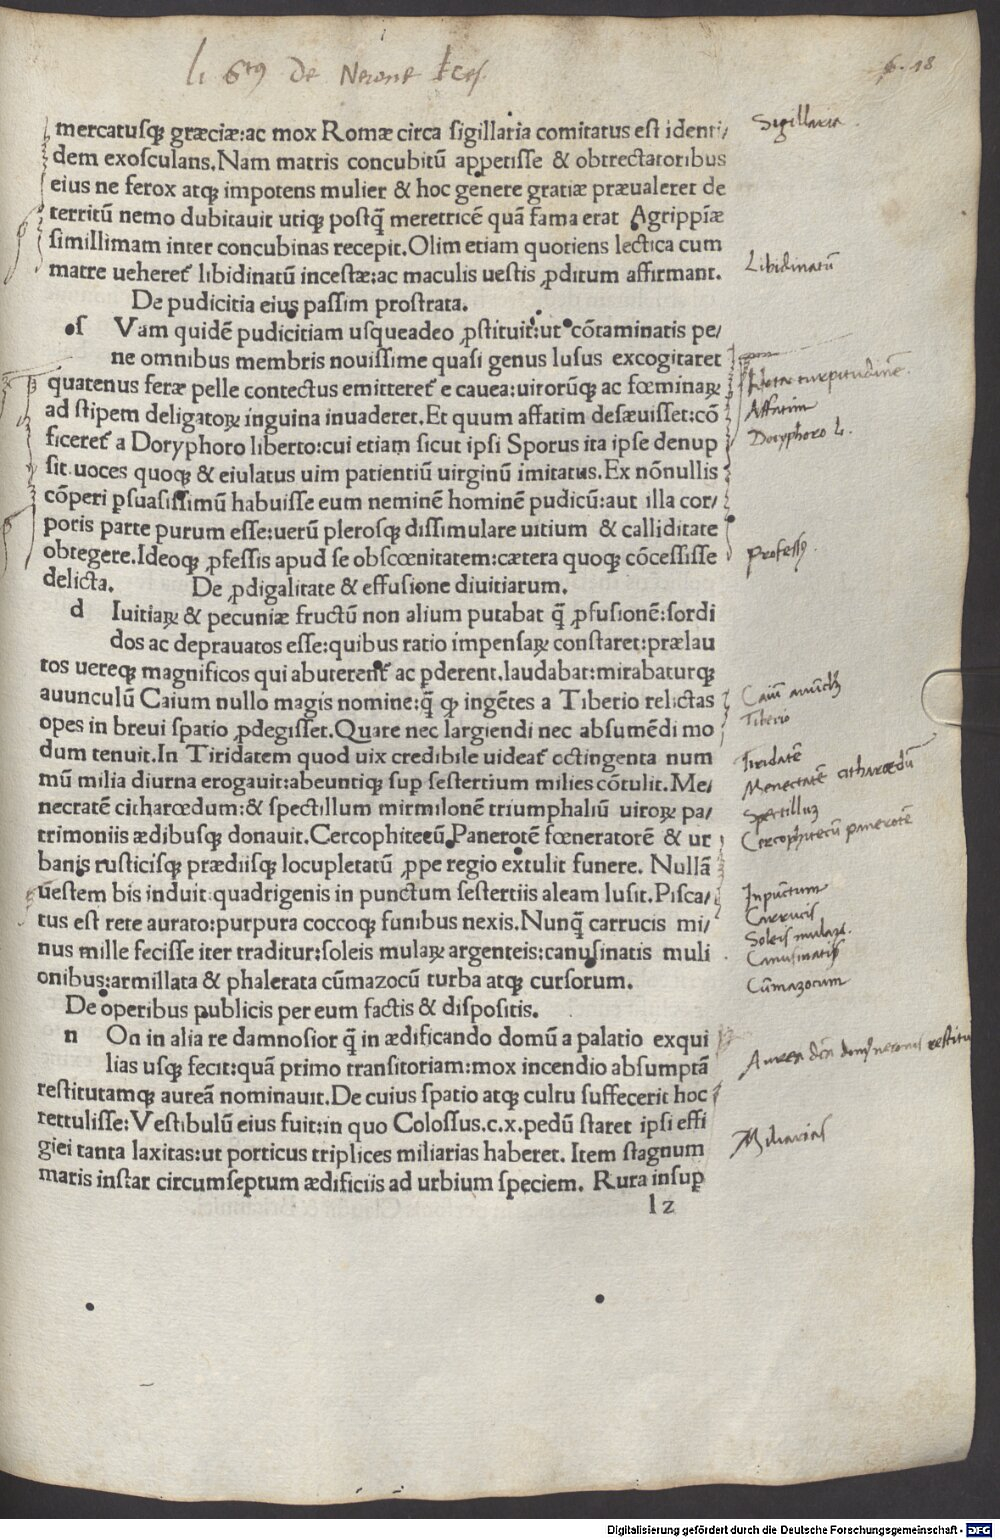 li 6tus De Nerone
6. 18
mercatusqꝫ græciæ:ac mox Romæ circa sigillaria comitatus est identi/
dem exosculans.Nam matris concubitū appetisse & obtrectatoribus
eius ne ferox atqꝫ impotens mulier & hoc genere gratiæ præualeret de
territū nemo dubitauit utiqꝫ postq̄ meretricē quā fama erat Agrippíæ
simillimam inter concubinas recepit.Olim etiam quotiens lectica cum
matre ueheret᷑ libidinatū incestæ:ac maculis uestis ꝓditum affirmant.
De pudicitia eius passim prostrata.
s Vam quidē pudicitiam usqueadeo ꝓstituit:ut cōtaminatis pe/
ne omnibus membris nouissime quasi genus lusus excogitaret
quatenus feræ pelle contectus emitteret᷑ e cauea:uirorūqꝫ ac fœminaꝝ
ad stipem deligatoꝝ inguina inuaderet.Et quum affatim desæuisset:cō
ficeret᷑ a Doryphoro liberto:cui etiam sicut ipsi Sporus ita ipse denup
sit.uoces quoqꝫ & eiulatus uim patientiū uirginū imitatus.Ex nōnullis
cōperi ꝑsuasissimū habuisse eum neminē hominē pudicū:aut illa cor/
poris parte purum esse:uerū plerosqꝫ dissimulare uitium & calliditate
obtegere.Ideoqꝫ ꝓfessis apud se obscœnitatem:cætera quoqꝫ cōcessisse
delicta. De ꝓdigalitate & effusione diuitiarum.
d Iuitiaꝝ & pecuniæ fructū non alium putabat q̄ ꝓfusionē:sordi
dos ac deprauatos esse:quibus ratio impensaꝝ constaret:prælau
tos uereqꝫ magnificos qui abuterent᷑ ac ꝑderent.laudabat:mirabaturqꝫ
auunculū Caium nullo magis nomine:q̄ ꝙ ingētes a Tiberio relictas
opes in breui spatio ꝓdegisset.Quare nec largiendi nec absumēdi mo
dum tenuit.In Tiridatem quod uix credibile uideat᷑ octingenta num
mū milia diurna erogauit:abeuntiqꝫ suꝑ sestertium milies cōtulit.Me/
necratē citharœdum:& spectillum mirmilonē triumphaliū uiroꝝ pa/
trimoniis ædibusqꝫ donauit.Cercophiteeū.Panerotē fœneratorē & ur
banis rusticisqꝫ prædiisqꝫ locupletatū ꝓpe regio extulit funere. Nullā
uestem bis induit.quadrigenis in punctum sestertiis aleam lusit.Pisca/
tus est rete aurato:purpura coccoqꝫ funibus nexis.Nunq̄ carrucis mi/
nus mille fecisse iter traditur:soleis mulaꝝ argenteis:canusinatis muli
onibus:armillata & phalerata cūmazocū turba atqꝫ cursorum.
De operibus publicis per eum factis & dispositis.
n On in alia re damnosior q̄ in ædificando domū a palatio exqui
lias usqꝫ fecit:quā primo transitoriam:mox incendio absumptā
restitutamqꝫ aureā nominauit.De cuius spatio atqꝫ cultu suffecerit hoc
rettulisse:Vestibulū eius fuit:in quo Colossus.c.x.pedū staret ipsi effi
giei tanta laxitas:ut porticus triplices miliarias haberet. Item stagnum
maris instar circumseptum ædificiis ad urbium speciem. Rura insuꝑ
l2
Sigillaria
Libidinatū
Nota turpitudinē.
Affatim
Doryphoro l.
Professꝰ.
Caiū auūclū
Tiberio
Tiridatē
Menecratē citharœdū
Spectillū
Cercophitecū panerotē
Inpunctum
Carrucis
Soleis mulaꝝ.
Canusinatis
Cūmazocum
Aurea dcā domꝰ neronis restitu
Miliarias
Digitalisierung gefördert durch die Deutsche Forschungsgemeinschaft - DFG